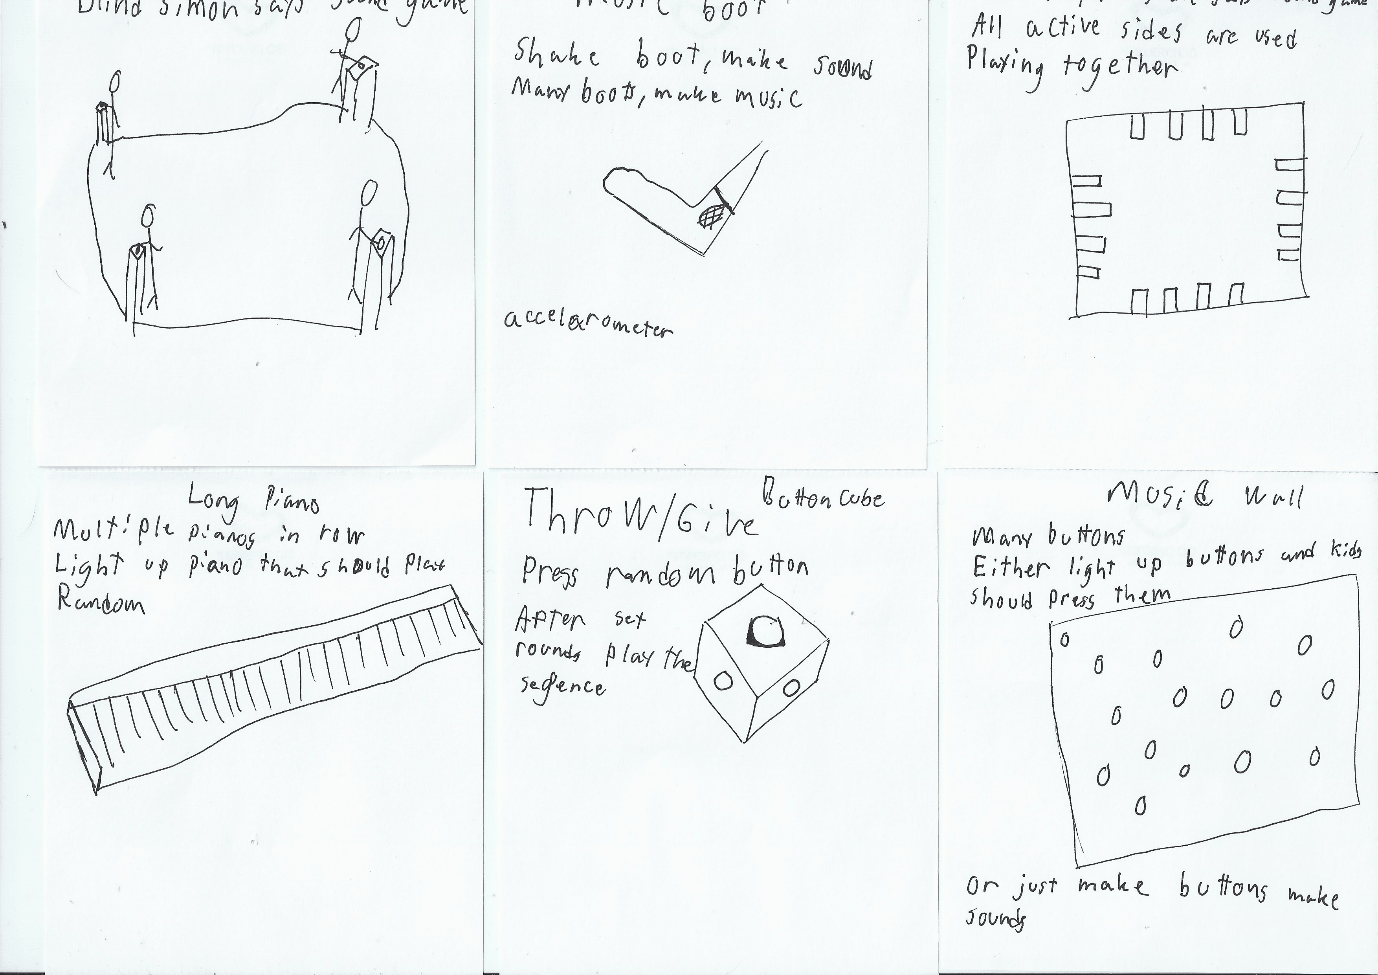 Blind Simon says sound game
Music boot
Shake boot, make sound
Many boots, make music
accelerometer
game
All active sides are used
Playing together
Long Piano
Multiple pianos in row
Light up piano that should Play
Random
Throw/Give
Button Cube
Press random button
After set
rounds play the
seqence
Music Wall
Many buttons
Either light up buttons and kids
should press them
Or just make buttons make
sounds